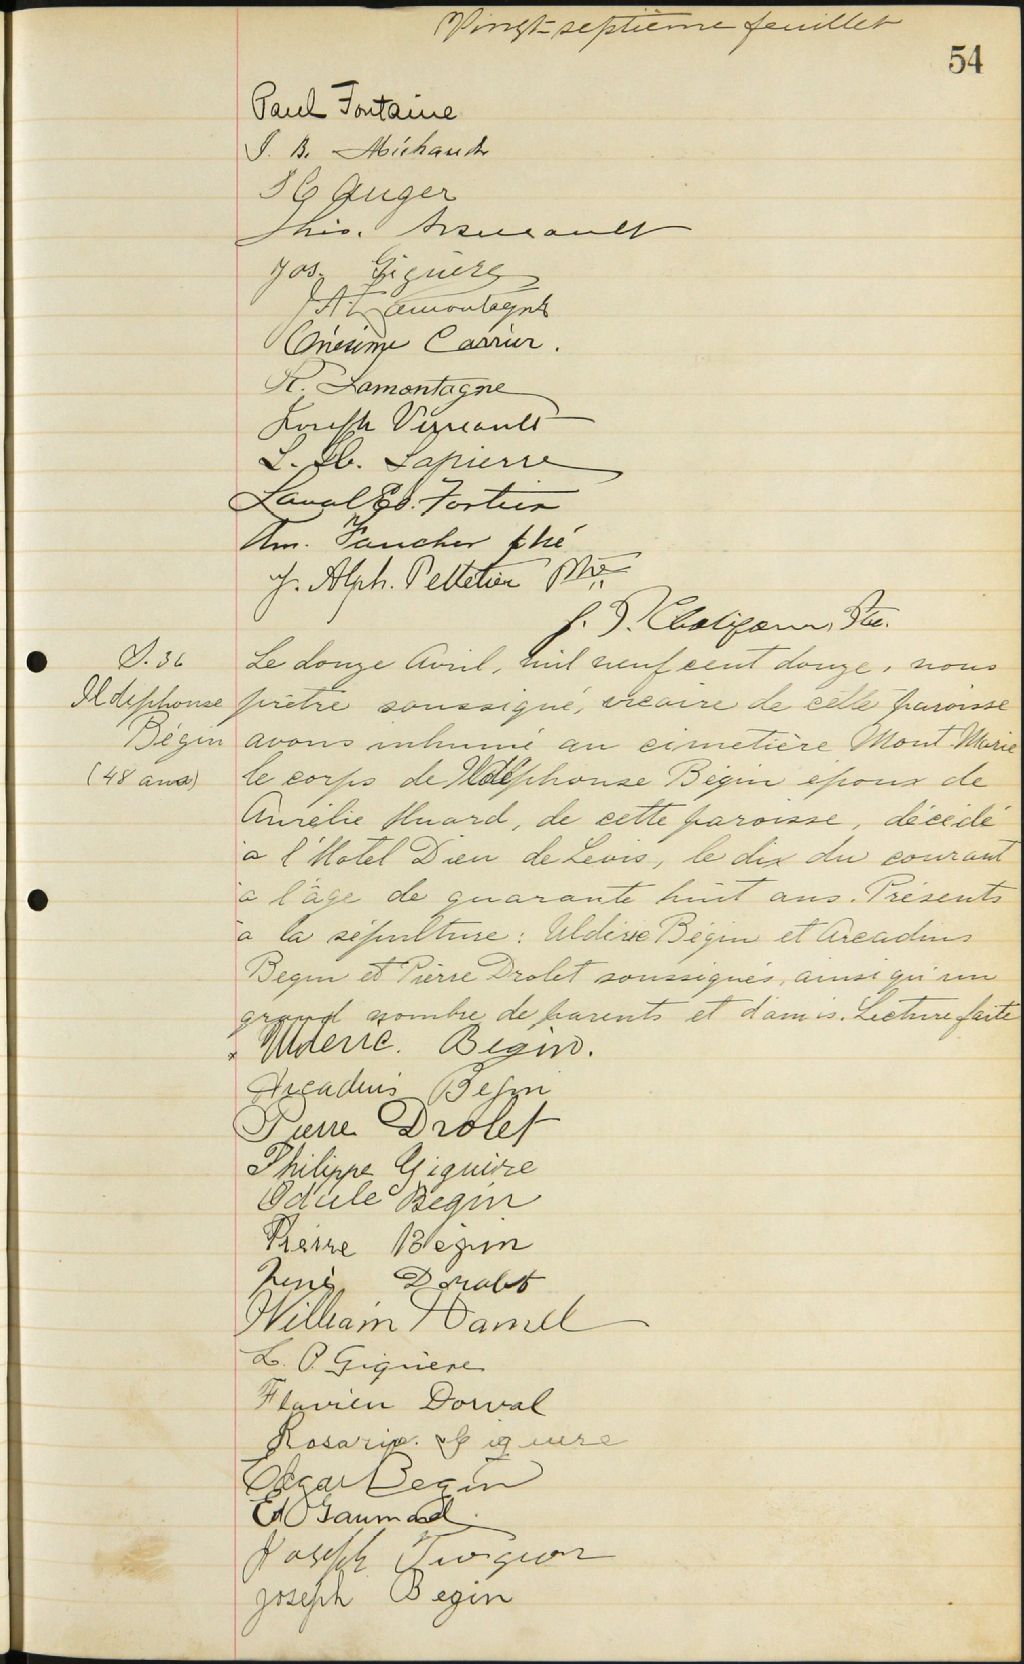 Vingt-septième feuillet
54
Paul Fontaine
J. B. Michaud
Auger
Arseneault
Jos. Giguère
J. A. Lamontagne
Onésime Carrier.
R. Lamontagne
Joseph Verreault
L. H. Lapierre
Laval Ed. Fortier
Am. Faucher ptre
J. Alph. Pelletier Ptre
J. T.
S. 36
Ildephonse
Bégin
(48 ans)
Le douze Avril, mil neuf cent douze, nous
prêtre soussigné, vicaire de cette paroisse
avons inhumé au cimetière Mont-Marie
le corps de Ildephonse Bégin époux de
Aurélie Huard, de cette paroisse, décédé
à l'Hotel Dieu de Lévis, le dix du courant
à l'âge de quarante huit ans. Présents
à la sépulture: Ulderic Bégin et Arcadius
Begin et Pierre Drolet soussignés, ainsi qu'un
grand nombre de parents et d'amis. Lecture faite
x Ulderic. Begin.
Arcadius Begin
Pierre Drolet
Philippe Giguère
Odule Begin
Pierre Bégin
René Drolet
William Hamel
L. P. Giguère
Flavien Dorval
Rosario Giguere
Edgar Begin
Ed Gaumond
Joseph Turgeon
Joseph Begin